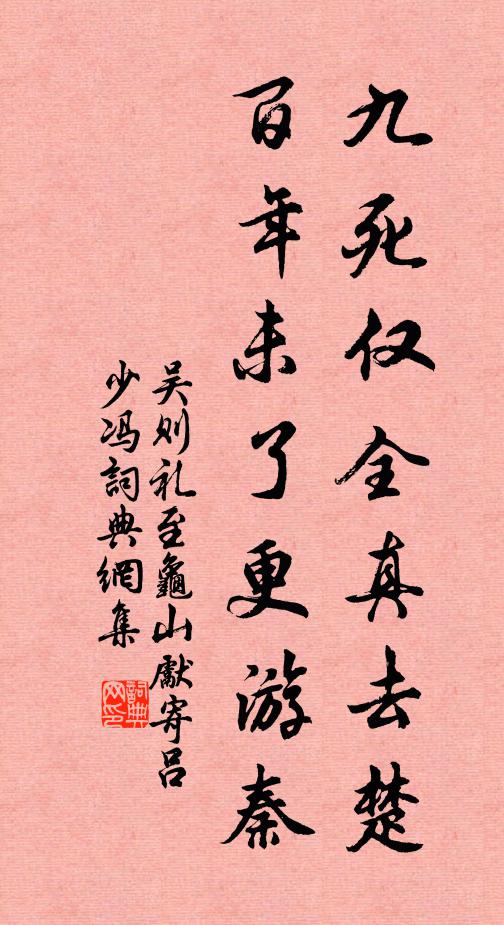 九死仅全真去楚
百年未了更游秦
吴则礼至龜山獻寄吕
少冯詞典網集
詞典
网印